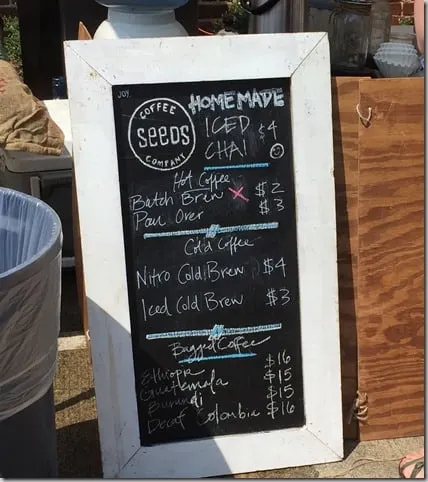 JOY.
COFFEE
SEEDS
COMPANY
HOMEMADE
ICED $4
CHAI
Hot Coffee
Batch Brew X $2
Pour Over $3
Cold Coffee
Nitro Cold Brew $4
Iced Cold Brew $3
Bagged Coffee
Ethiopia $16
Guatemala $15
Burundi $15
Decaf Colombia $16